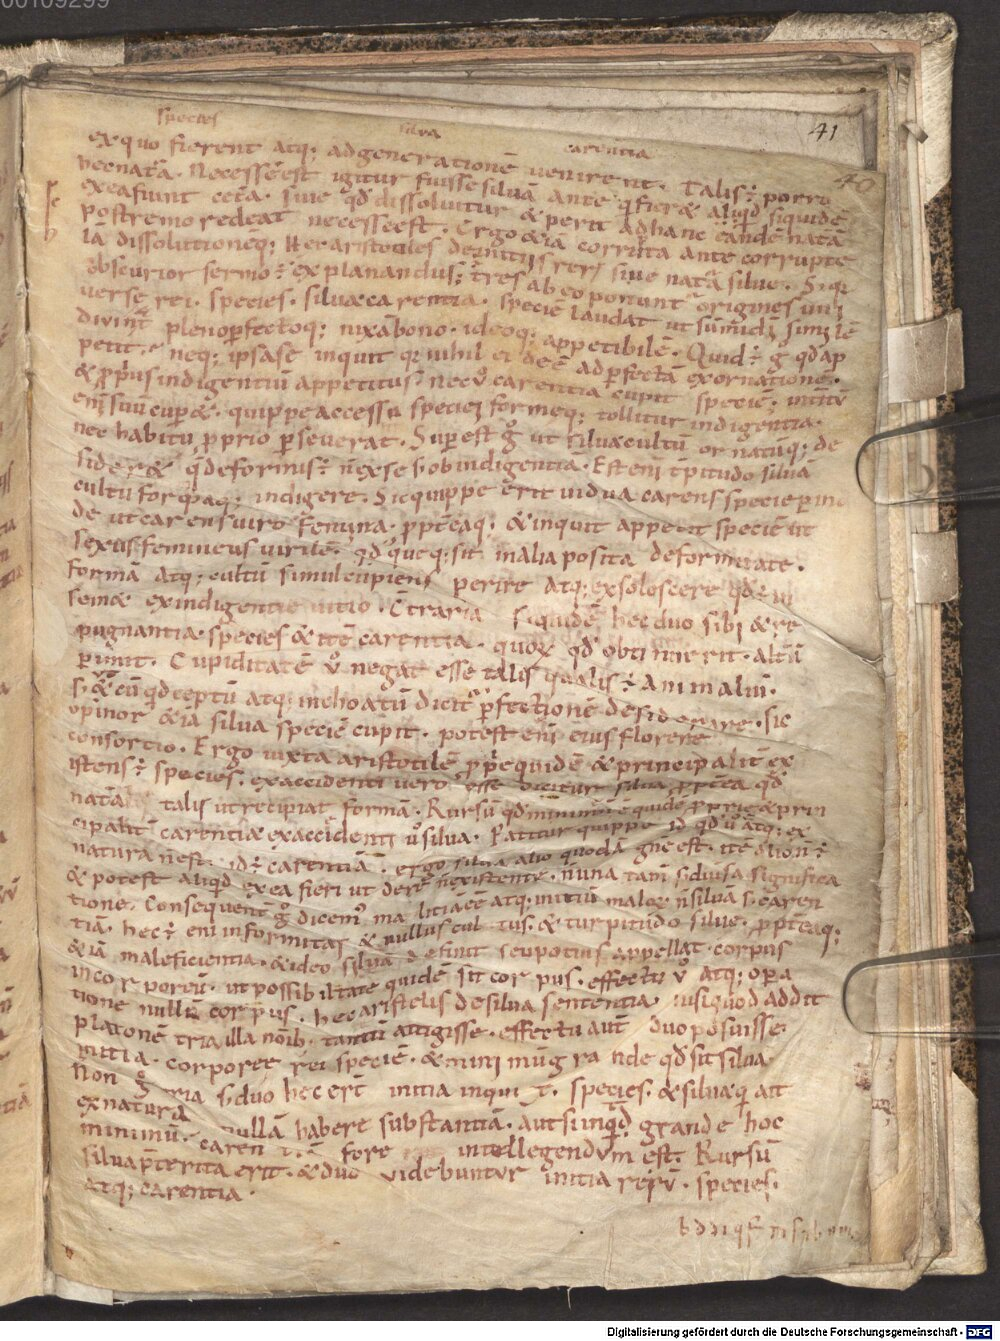 00109299
41
40
species silva carentia
ex quo fierent atq; ad generationē venirent. Talis ÷ porro
hec natā. Necesse ē est igitur fuisse silvā ante q̄ fieret aliqd siquidē
ex ea fiunt cetā. sive qd dissolvitur & perit ad hanc eandē natā
postremo redeat necesse est. Ergo & iā corrūta ante corrupte
lā dissolutionēq; Hec aristotiles de initiis rerū sive natā silve. Si qͥ
obscurior sermo ÷ explanandus; tres ab eo ponunt origines uni
verse rei. species. silva & carentia. speciē laudat ut sūmi dī similē
divinit plenoꝑfectoq; nixā bono. ideoq; appetibilē. Quid ÷ g̊ qd ap
petit. neq; ipsa se inquit qr nihil ei deē ad ꝑfectā exornationē.
& ꝓpus indigentiū appetitus ÷ nec v̊ carentia cupit speciē;
enī suū cuꝑet. quippe accessu speciei formeq; tollitur indigentia.
nec habitu ꝓprio ꝑseverat. Suꝑest g̊ ut silva cultū ornatūq; de
sideret q̄ deformis ÷ n̄ ex se s; ob indigentiā. Est enī tꝑitudo silvā
cultu forꝺaq; indigere. Sic quippe erit vidua carens specie ꝑin
de ut carens viro femina. ꝓpteaq; & inquit appetit speciē ut
sexus femineus virilē. qd queq; sit in alia posita deformitate.
formā atq; cultū simul cupiens perire atq; exsolescere qd ÷ in
semet ex indigentie vitio. Ctraria siquidē hec duo sibi & re
pugnantia species & itē carentia. quoꝝ qd obtinuerit. altū
ꝑimit. Cupiditatē v̊ negat esse talis qualis ÷ Animaliū.
s; & cū qd ceptū atq; inchoatū dicit ꝑfectionē desiderare. sic
opinor & iā silva speciē cupit. potest enī eius florere
consortio. Ergo iuxta aristotilē ꝓpe quidē & principalit ex
istens ÷ species. ex accidenti vero esse dicitur silva ꝓptea qd
natā talis ut recipiat formā. Rursū qd minimū ē quidē ꝓprie & prin
cipalit carentia ex accidenti v̊ silva. Patitur quippe id qd v̊ atq; ex
natura n̄ est. id ÷ carentiā. ergo silva alio quodā gn̄e est. itē
& potest aliqd ex ea fieri ut de re n̄ existente. n̄ una tam̄ s; diversa significa
tione. Consequent̄ g̊ dicem̊ malitiā ēē atq; initiū maloꝝ n̄ silvā s; caren
tiā. hec ÷ enī informitas & nullus cultus. & turpitudo silve. ꝓpteaq;
& iā maleficientia. & ideo silvā definit seu potius appellat corpus
incorporeū. ut possibilitate quidē sit corpus. effectu v̊ atq; oꝑa
tione nullū corpus. hec aristotelis de silva sententia. iusi quod addit
platonē tria illa noīb; tantū attigisse. effectu autē duo posuisse
initia. corporee rei speciē. & minimūgrande qd sit silva.
Non g̊ tria s; duo hec erūt initia inquit. species. & silva q̄ ait
ex natura nullā habere substantiā. aut si inqd grande hoc
minimū. carentiā fore intellegendum est. Rursū
silva pterita erit. & duo videbuntur initia rerū. species.
atq; carentia.
Digitalisierung gefördert durch die Deutsche Forschungsgemeinschaft - DFG